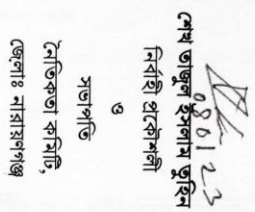 080123
শেখ তাজুল ইসলাম তুহিন
নির্বাহী প্রকৌশলী
ও
সভাপতি
নৈতিকতা কমিটি,
জেলাঃ নারায়ণগঞ্জ